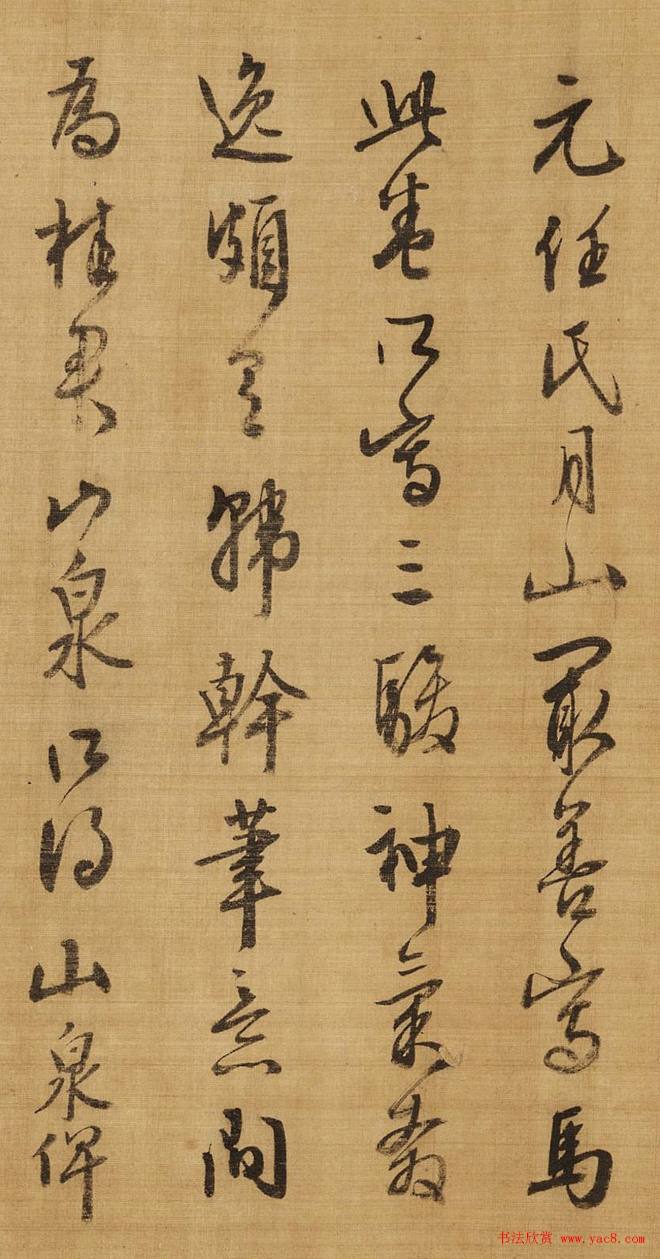 元任氏月山最善寫馬
此卷所寫三駿神氣奇
逸頗得韓幹筆意間
為桂君山泉所得山泉俾
书法欣赏 www.yac8.com